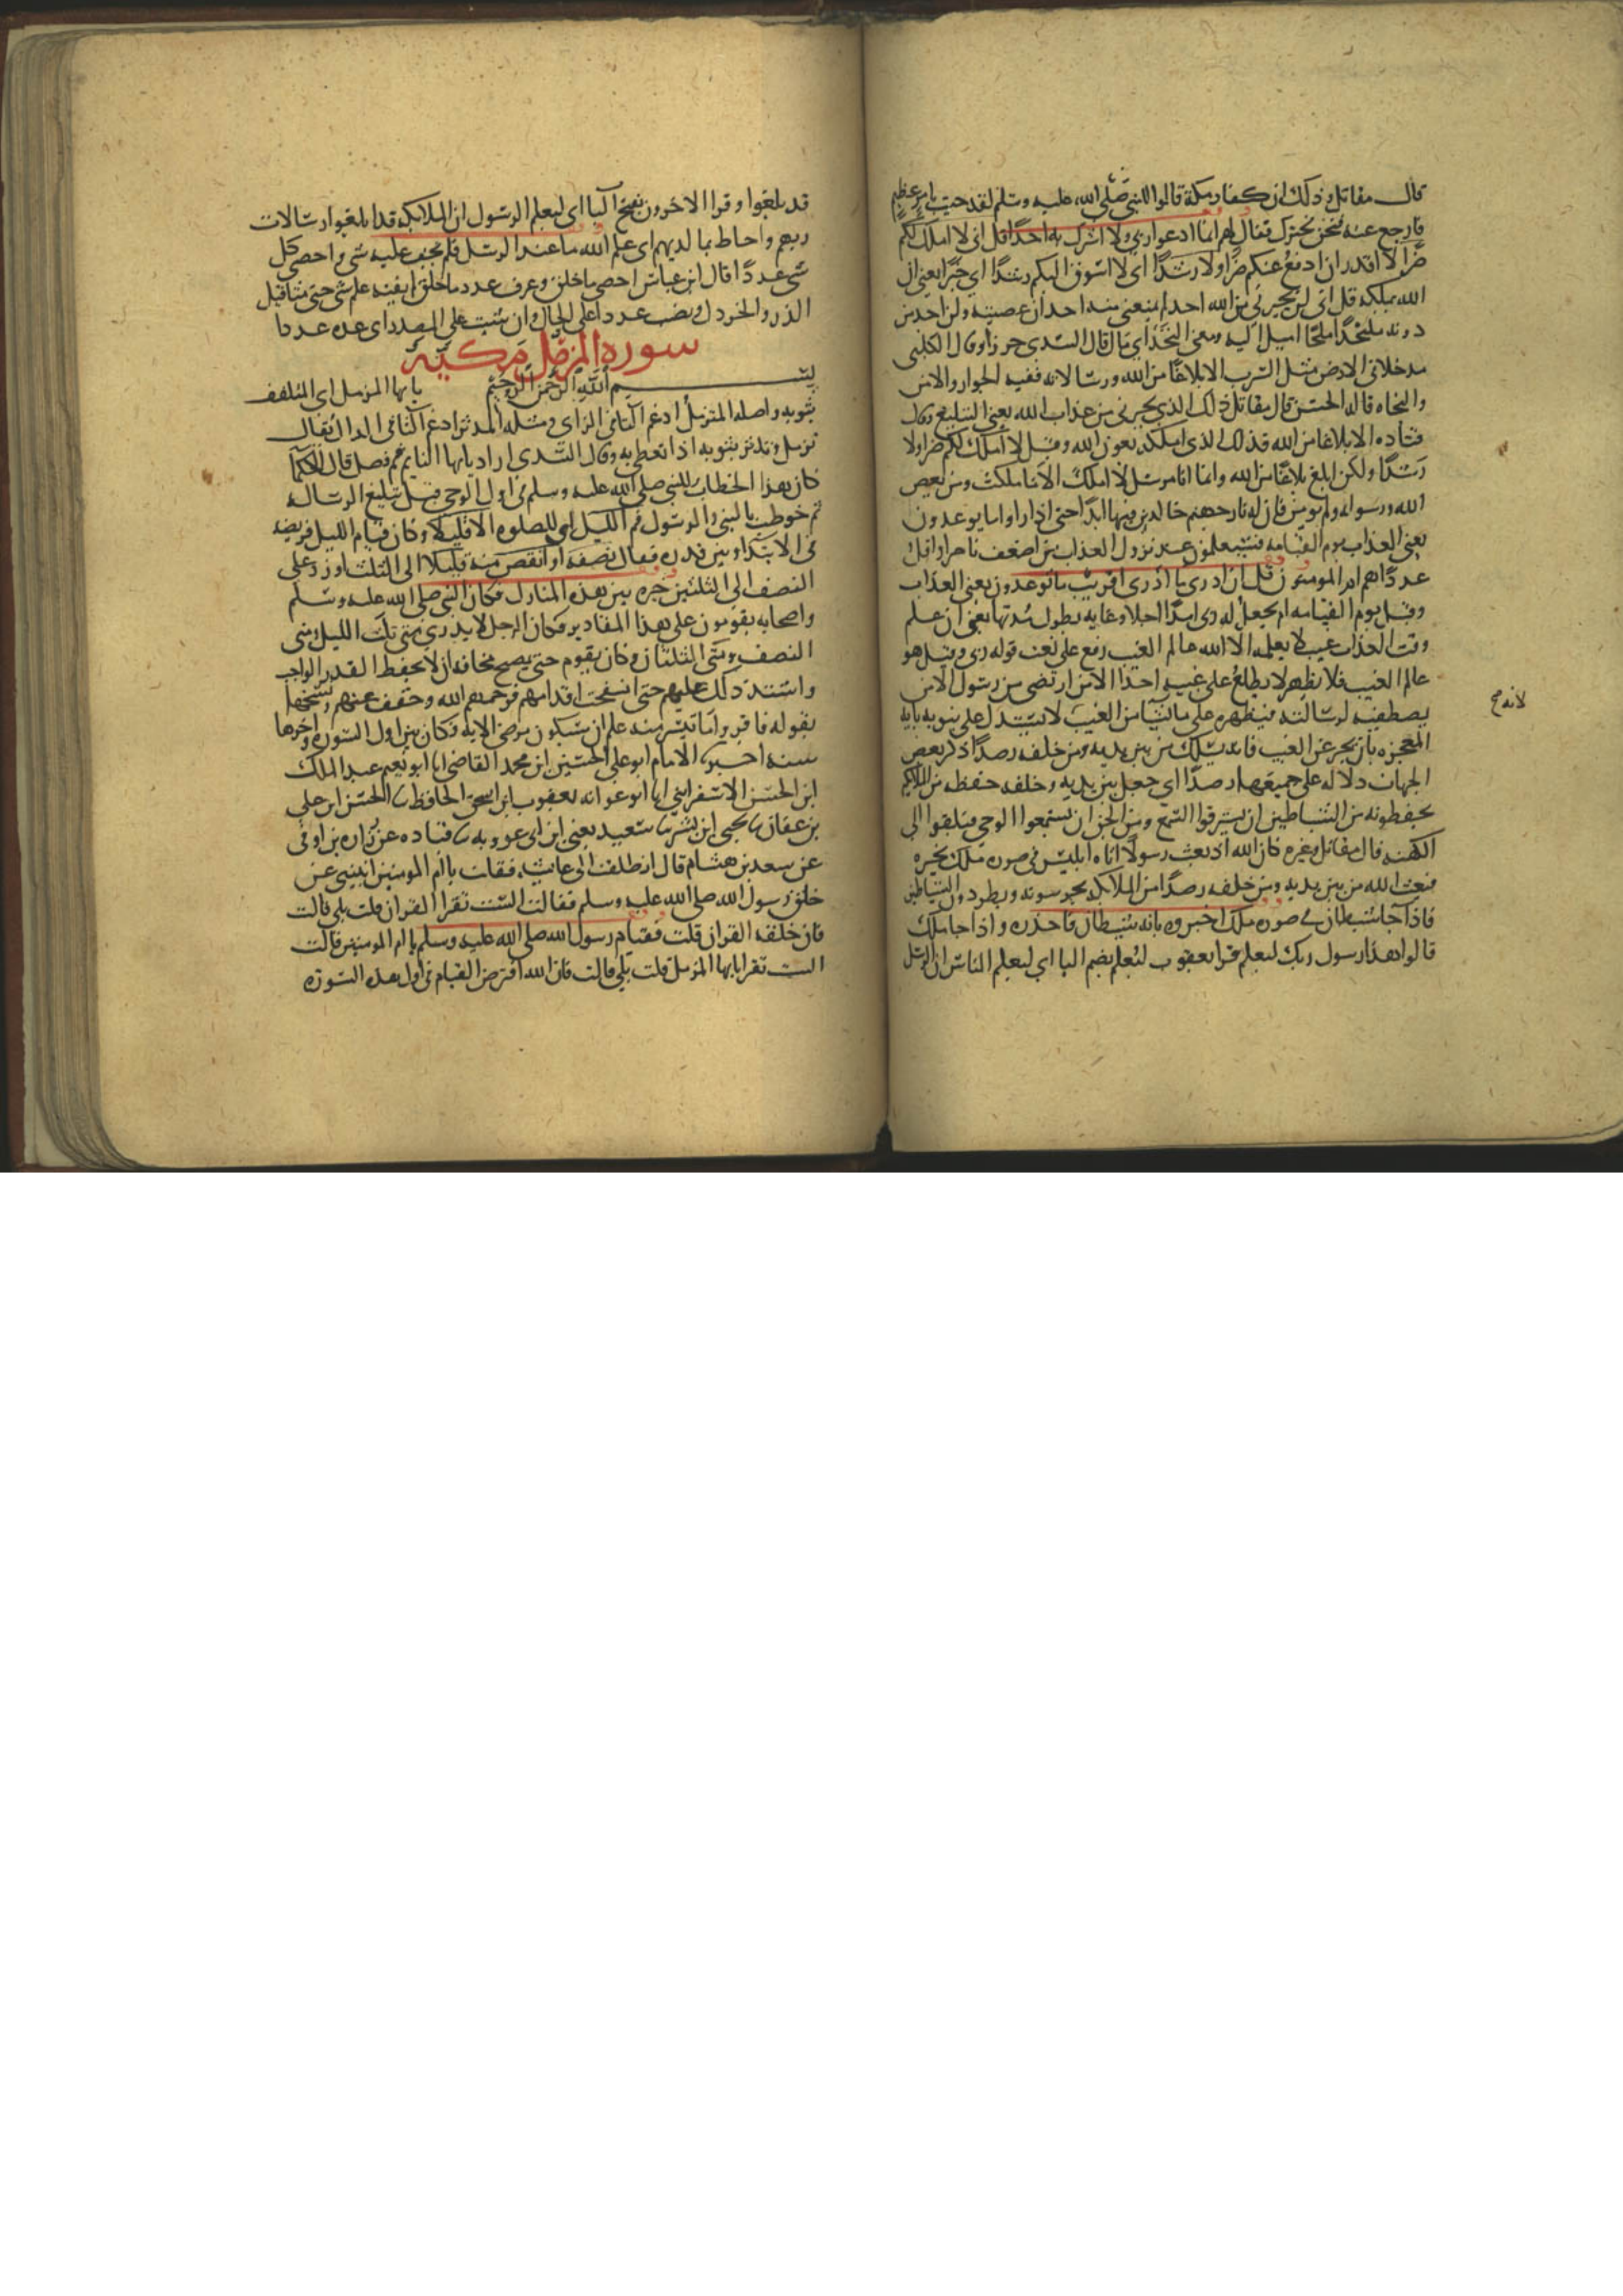 قال مقاتل وذلك ان كفار مكة قالوا للنبي صلى الله عليه وسلم لقد جيت بامر عظيم
فارجع عنه فنحن نجيرك فقال لهم انما ادعوا ربي ولا اشرك به احدا قل اني لا املك لكم
ضرا لا اقدر ان ادفع عنكم ضرا ولا رشدا اي لا اسوق اليكم رشدا اي خيرا يعني ان
الله يملكه قل اني لن يجيرني من الله احد لم يمنعني منه احد ان عصيته ولن اجد من
دونه ملتحدا ملجا اميل اليه ومعنى التحد اي مال قال السدي حرزا وقال الكلبي
مدخلا في الارض مثل السرب الا بلاغا من الله ورسالاته ففيه الجوار والامن
والنجاه قاله الحسن قال مقاتل ذلك الذي يجيرني من عذاب الله يعني التبليغ وقال
قتاده الا بلاغا من الله فذلك الذي املكه بعون الله وقيل لا املك لكم ضرا ولا
رشدا ولكن ابلغ بلاغا من الله وانما انا مرسل لا املك الا ما ملكت ومن يعص
الله ورسوله ولم يومن فان له نار جهنم خالدين فيها ابدا حتى اذا راوا ما يوعدون
يعني العذاب يوم القيامه فسيعلمون عند نزول العذاب من اضعف ناصرا واقل
عددا اهم ام المومنون قل ان ادري ما ادري اقريب ما توعدون يعني العذاب
وقيل يوم القيامه ام يجعل له ربي امدا اجلا وغايه يطول مدتها يعني ان علم
وقت العذاب غيب لا يعلمه الا الله عالم الغيب رفع على نعت قوله ربي وقيل هو
عالم الغيب فلا يظهر لا يطلع على غيبه احدا الا من ارتضى من رسول الا من
يصطفيه لرسالته فيظهره على ما يشا من الغيب لا يستدل على نبوته بايه
المعجزه بان يخبر عن الغيب فانه يسلك من بين يديه ومن خلفه رصدا ذكر بعض
الجهات دلاله على جميعها رصدا اي جعل بين يديه وخلفه حفظه من الملايكه
يحفظونه من الشياطين ان يسترقوا السمع ومن الجن ان يستمعوا الوحي فيلقوا الى
الكهنه قال مقاتل وغيره كان الله اذ بعث رسولا اتاه ابليس في صوره ملك يخبره
فبعث الله من بين يديه ومن خلفه رصدا من الملايكه يحرسونه ويطردون الشياطين
فاذا جا شيطان في صوره ملك اخبروه بانه شيطان فاحذره واذا جا ملك
قالوا هذا رسول ربك ليعلم قرا يعقوب ليعلم بضم اليا اي ليعلم الناس ان الرسل
لانه صح
قد بلغوا وقرا الاخرون بفتح اليا اي ليعلم الرسول ان الملايكه قد ابلغوا رسالات
ربهم واحاط بما لديهم اي علم الله ما عند الرسل فلم يخف عليه شي واحصى كل
شي عددا قال ابن عباس احصى ما خلق وعرف عدد ما خلق لم يفته علم شي حتى مثاقيل
الذر والخردل ونصب عددا على الحال وان شيت على المصدر اي عد عددا
سورة المزمل مكية
بسم الله الرحمن الرحيم يا يها المزمل اي المتلفف
بثوبه واصله المتزمل ادغم التا في الزاي ومثله المدثر ادغم التا في الدال يقال
تزمل وتدثر بثوبه اذا تغطى به وقال السدي اراد يا يها النايم قم فصل قال الحكما
كان هذا الخطاب للنبي صلى الله عليه وسلم في اول الوحي قبل تبليغ الرساله
ثم خوطب بالنبي والرسول قم الليل اي للصلوه الا قليلا وكان قيام الليل فريضه
في الابتدا وبين قدره فقال نصفه او انقص منه قليلا الى الثلث او زد على
النصف الى الثلثين خيره بين هذه المنازل فكان النبي صلى الله عليه وسلم
واصحابه يقومون على هذا المقادير فكان الرجل لا يدري متى ثلث الليل ومتى
النصف ومتى الثلثان وكان يقوم حتى يصبح مخافه ان لا يحفظ القدر الواجب
واشتد ذلك عليهم حتى انتفخت اقدامهم فرحمهم الله وخفف عنهم ونسخها
بقوله فاقروا ما تيسر منه علم ان سيكون مرضى الايه فكان بين اول السوره واخرها
سنه اخبرنا الامام ابو علي الحسين ابن محمد القاضي انا ابو نعيم عبد الملك
ابن الحسن الاسفرايني انا ابو عوانه يعقوب ابن اسحق الحافظ نا الحسن ابن علي
بن عفان نا يحيى ابن بشر نا سعيد يعني ابن ابي عروبه نا قتاده عن زراره بن اوفى
عن سعد بن هشام قال انطلقت الى عايشه فقلت يا ام المومنين انبيني عن
خلق رسول الله صلى الله عليه وسلم فقالت الست تقرا القران قلت بلى قالت
فان خلقه القران قلت فقيام رسول الله صلى الله عليه وسلم يا ام المومنين قالت
الست تقرا يا يها المزمل قلت بلى قالت فان الله افترض القيام في اول هذه السوره